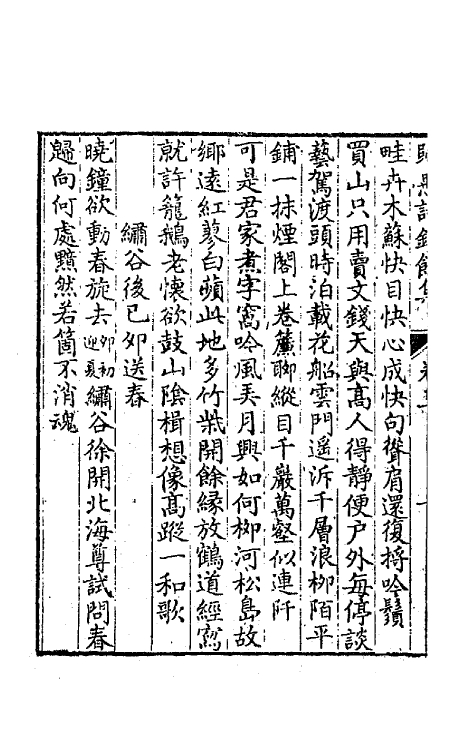 畦卉木蘇快目快心成快句聳肩還復捋吟鬚
買山只用賣文錢天與高人得靜便戶外每停談
藝駕渡頭時泊載花船雲門遥泝千層浪柳陌平
鋪一抹煙閣上卷簾聊縱目千巖萬壑似連阡
可是君家煮字窩吟風弄月興如何柳河松島故
鄉遠紅蓼白蘋此地多竹牀開餘緣放鶴道經寫
就許籠鵝老懷欲鼓山陰楫想像高蹤一和歌
繡谷後已夘送春
曉鐘欲動春旋去夘初迎夏繡谷徐開北海尊試問春
歸向何處黯然若箇不消魂